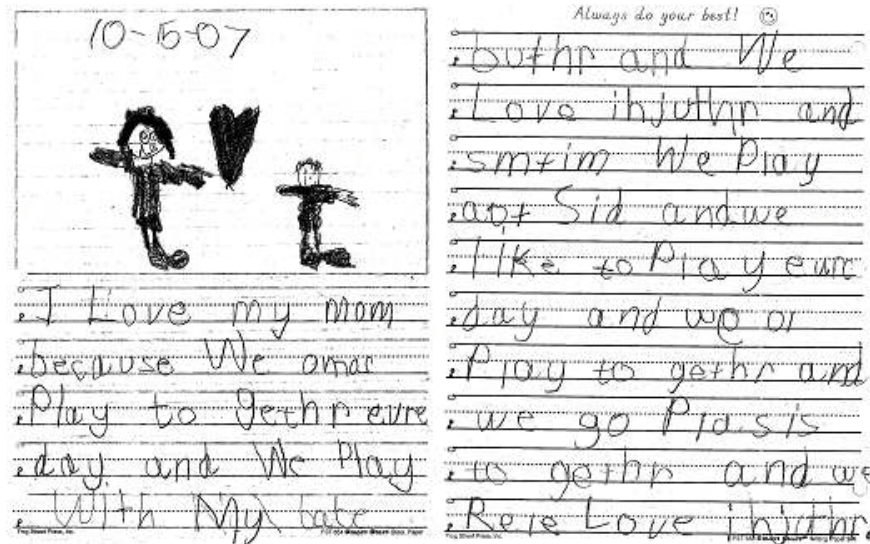 10-15-07
I Love my mom
because We omas
Play to gethr evre
day and We Play
With My babe
Frog Street Press, Inc.
Always do your best!
buthr and We
Love ihjuthr and
smtim We Play
aot Sid and we
like to Play eurc
day and we or
Play to gethr and
we go Plasis
to gethr and we
Rele Love ihjuthr
Frog Street Press, Inc.